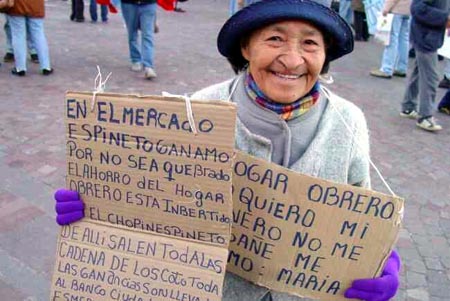 EN EL MERCADO
ESPINETO GANAMO
POR NO SEA QUEBRADO
EL AHORRO DEL HOGAR
OBRERO ESTA INBERTIDO
EL CHOPINESPINETO
DE ALLI SALEN TODA LAS
CADENA DE LOS COTO TODA
LAS GANANCIAS SON LLEVA
AL BANCO
OGAR OBRERO
QUIERO MI
NERO NO ME
AÑE ME
MO: MARIA